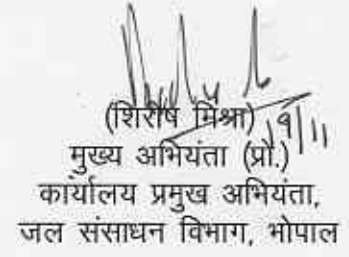 (शिरीष मिश्रा)
19/11
मुख्य अभियंता (प्रो.)
कार्यालय प्रमुख अभियंता,
जल संसाधन विभाग, भोपाल